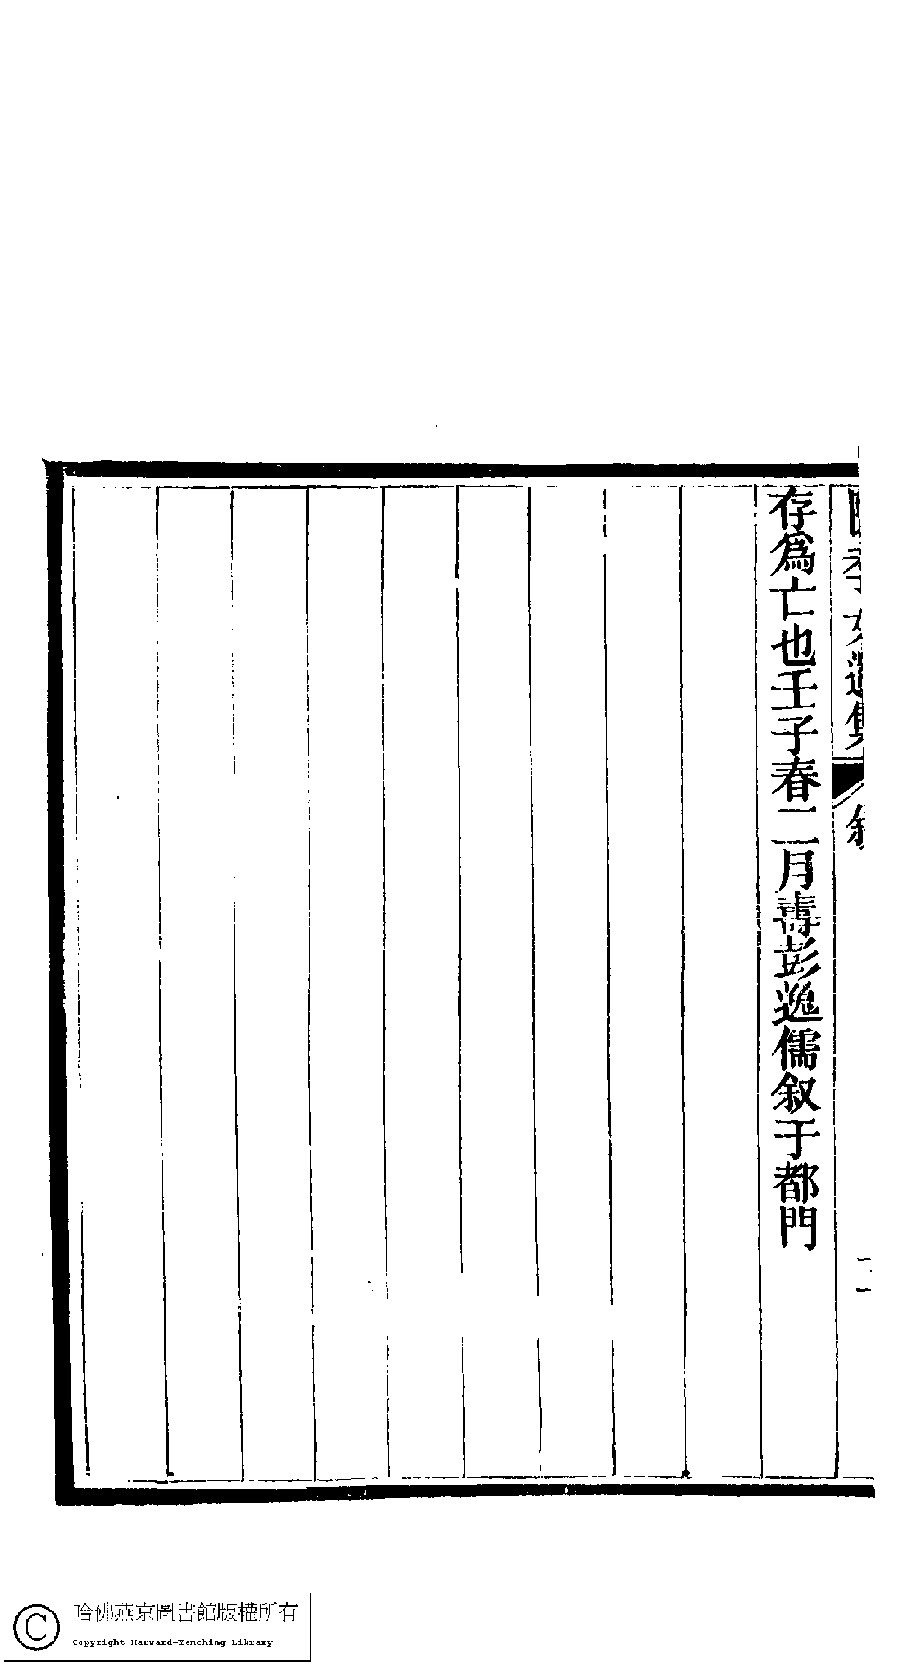 孝女遺集
存爲亡也壬子春二月壽彭逸儒叙于都門
哈佛燕京圖書館版權所有
Copyright Harvard-Yenching Library